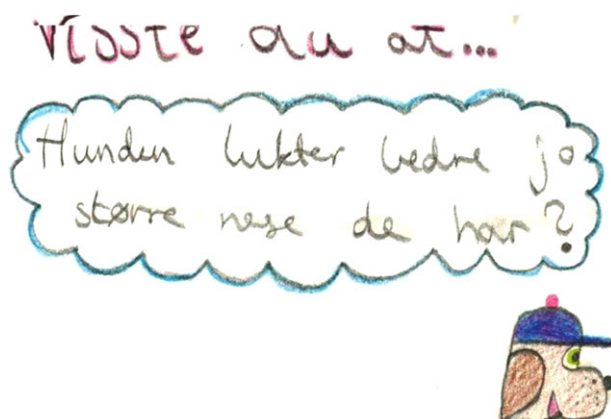 Visste du at...
Hunder lukter bedre jo
større nese de har?